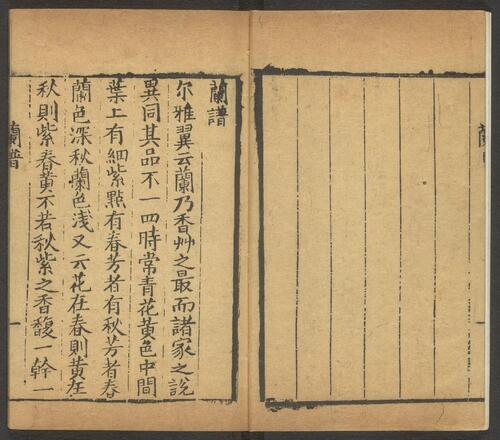 蘭譜
尔雅翼云蘭乃香艸之最而諸家之說
異同其品不一四時常青花黃色中間
葉上有細紫點有春芳者有秋芳者春
蘭色深秋蘭色浅又云花在春則黃在
秋則紫春黃不若秋紫之香馥一幹一
蘭譜
一